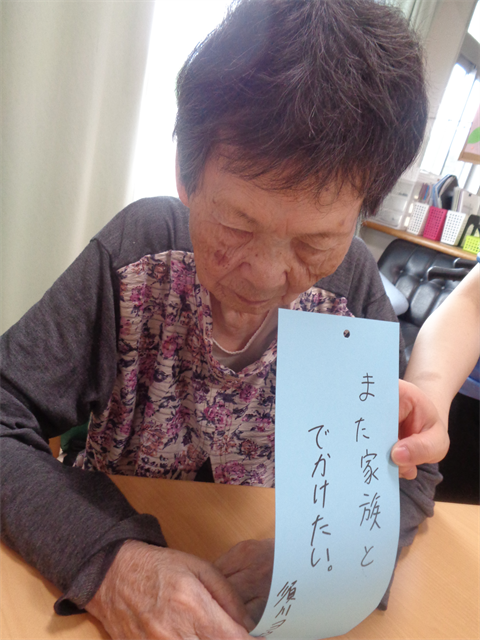 また家族と
でかけたい。
須川